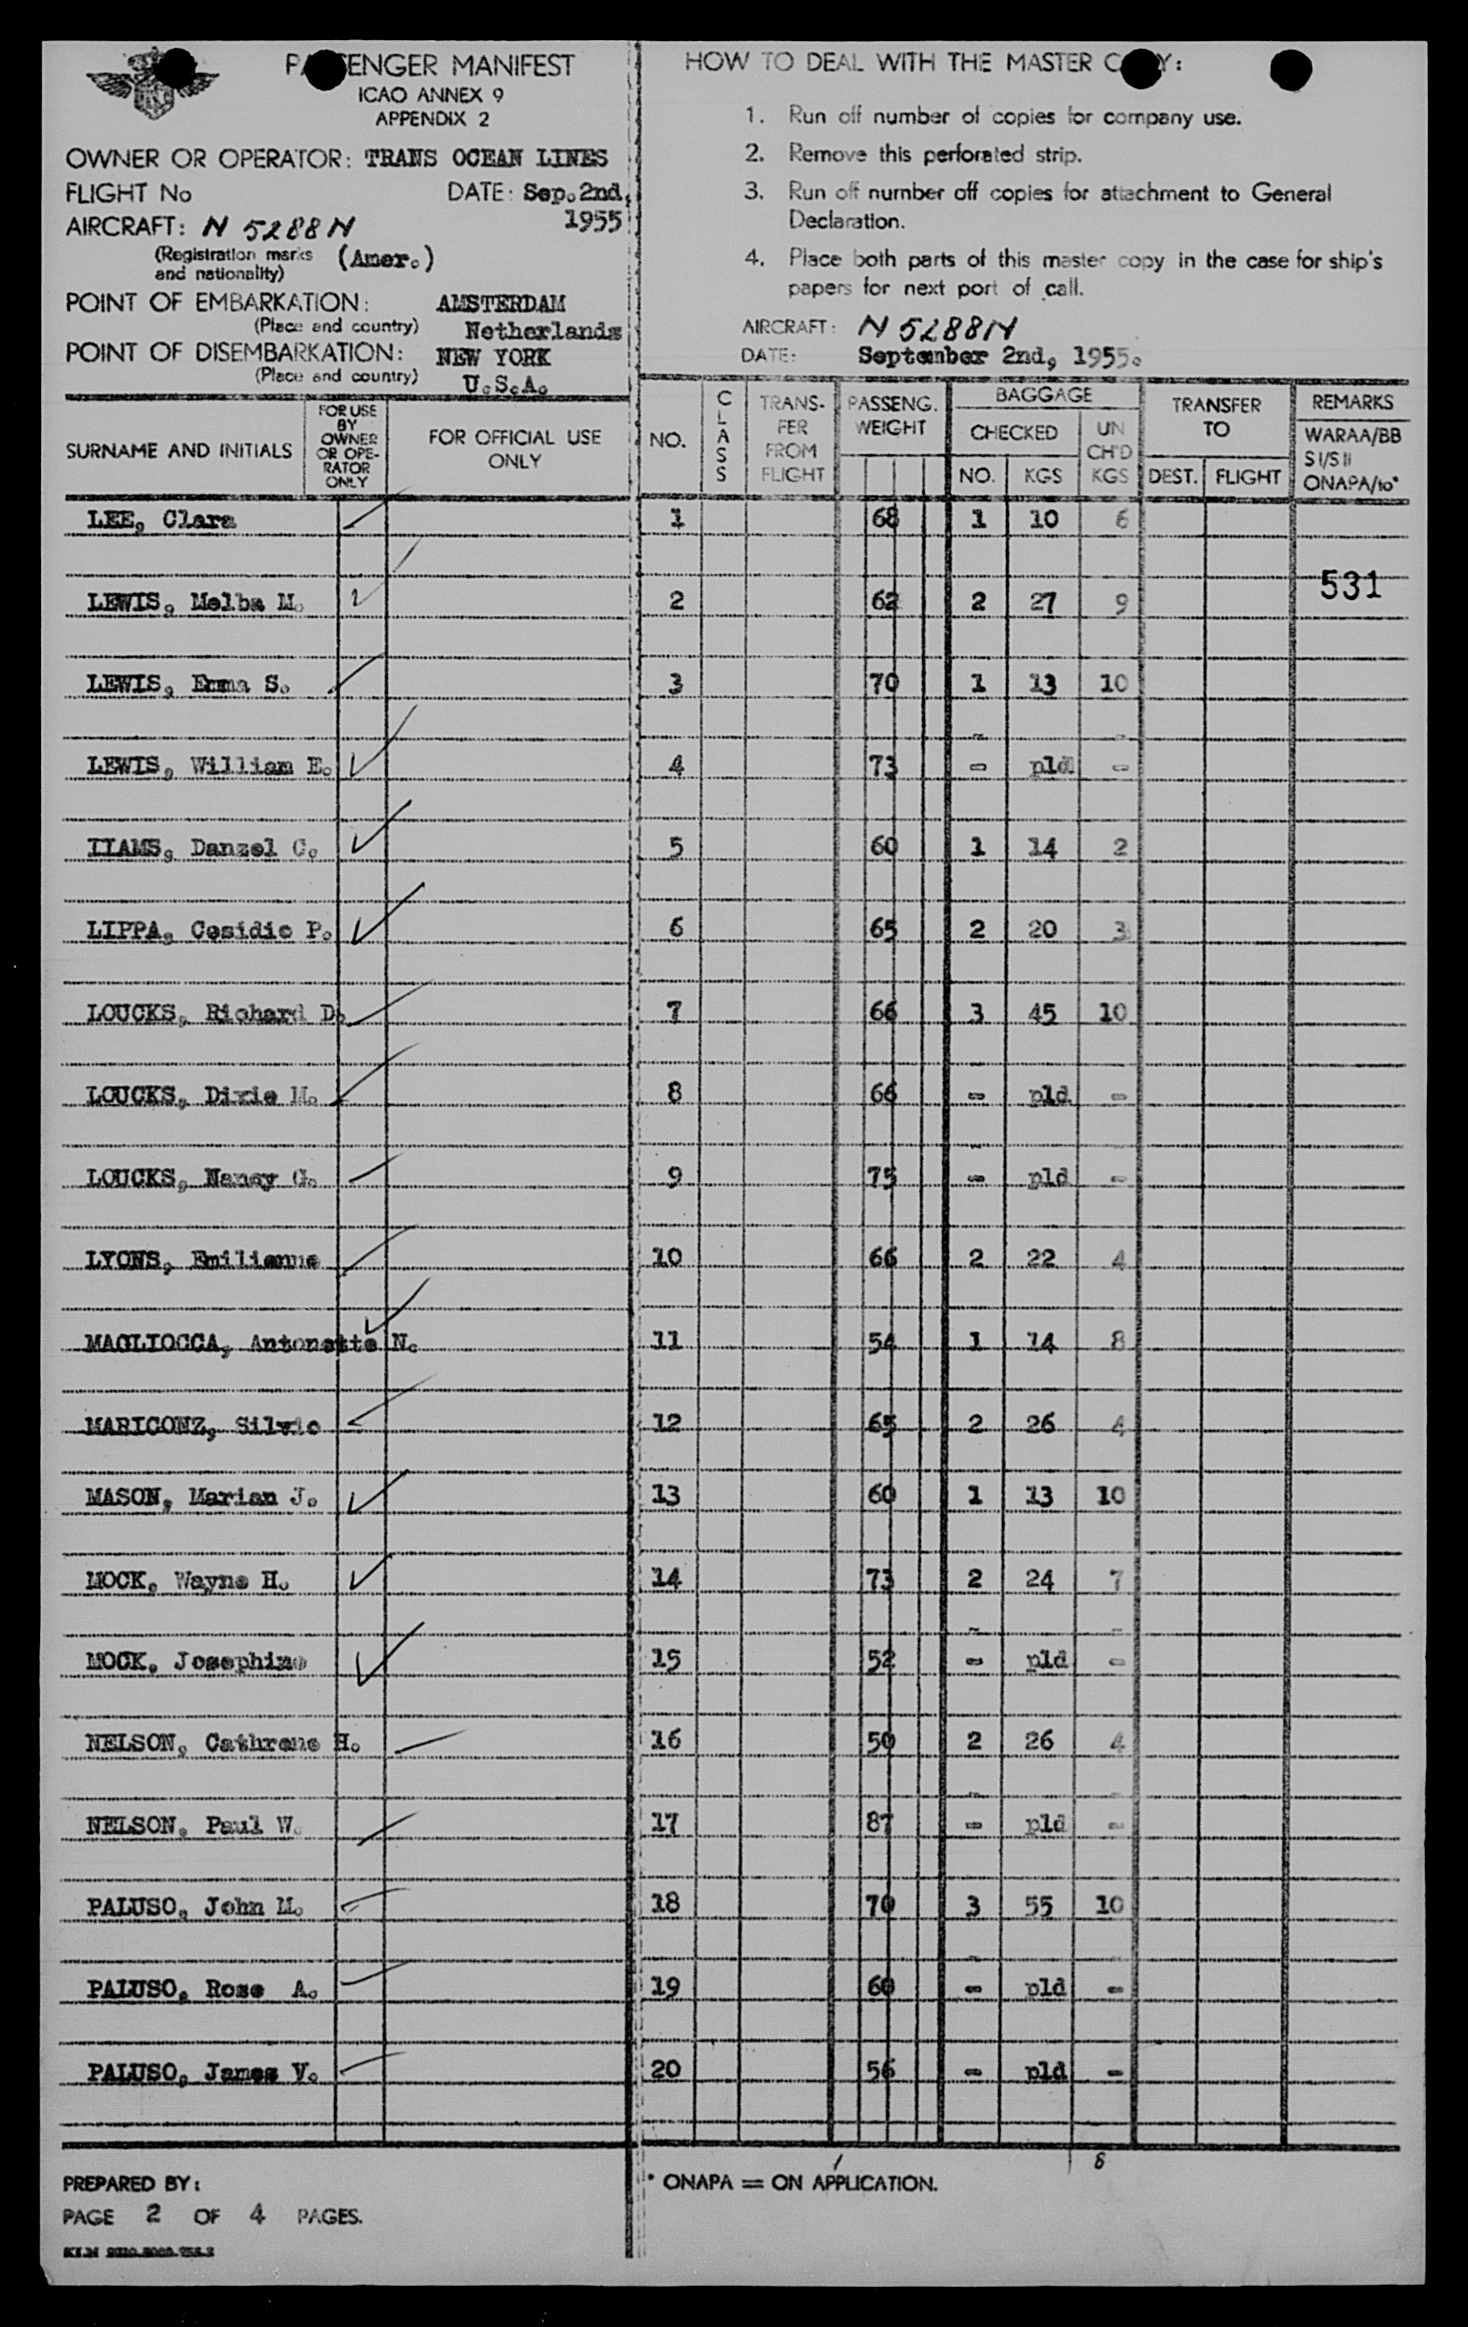 PASSENGER MANIFEST
ICAO ANNEX 9
APPENDIX 2
OWNER OR OPERATOR: TRANS OCEAN LINES
FLIGHT No DATE: Sep. 2nd,
1955
AIRCRAFT: N 5288N
(Registration marks and nationality) (Amer.)
POINT OF EMBARKATION: AMSTERDAM
(Place and country) Netherlands
POINT OF DISEMBARKATION: NEW YORK
(Place and country) U.S.A.
HOW TO DEAL WITH THE MASTER COPY:
1. Run off number of copies for company use.
2. Remove this perforated strip.
3. Run off number off copies for attachment to General
Declaration.
4. Place both parts of this master copy in the case for ship's
papers for next port of call.
AIRCRAFT: N 5288N
DATE: September 2nd, 1955.
SURNAME AND INITIALS FOR USE BY OWNER OR OPE-RATOR ONLY FOR OFFICIAL USE ONLY NO. CLASS TRANS-FER FROM FLIGHT PASSENG. WEIGHT BAGGAGE CHECKED NO. KGS UN CH'D KGS TRANSFER TO DEST. FLIGHT REMARKS WARAA/BB SI/SII ONAPA/to*
LEE, Clara 1 68 1 10 6
531
LEWIS, Melba M. 2 62 2 27 9
LEWIS, Emma S. 3 70 1 13 10
LEWIS, William E. 4 73 - pld -
IIAMS, Danzel C. 5 60 1 14 2
LIPPA, Cesidio P. 6 65 2 20 3
LOUCKS, Richard D. 7 66 3 45 10
LOUCKS, Dixie M. 8 66 - pld -
LOUCKS, Nancy G. 9 75 - pld -
LYONS, Emilienne 10 66 2 22 4
MAGLIOCCA, Antonette N. 11 54 1 14 8
MARICONZ, Silvio 12 65 2 26 4
MASON, Marian J. 13 60 1 13 10
MOCK, Wayne H. 14 73 2 24 7
MOCK, Josephine 15 52 - pld -
NELSON, Cathrene H. 16 50 2 26 4
NELSON, Paul W. 17 87 - pld -
PALUSO, John M. 18 70 3 55 10
PALUSO, Rose A. 19 60 - pld -
PALUSO, James V. 20 56 - pld -
8
PREPARED BY:
* ONAPA = ON APPLICATION.
PAGE 2 OF 4 PAGES.